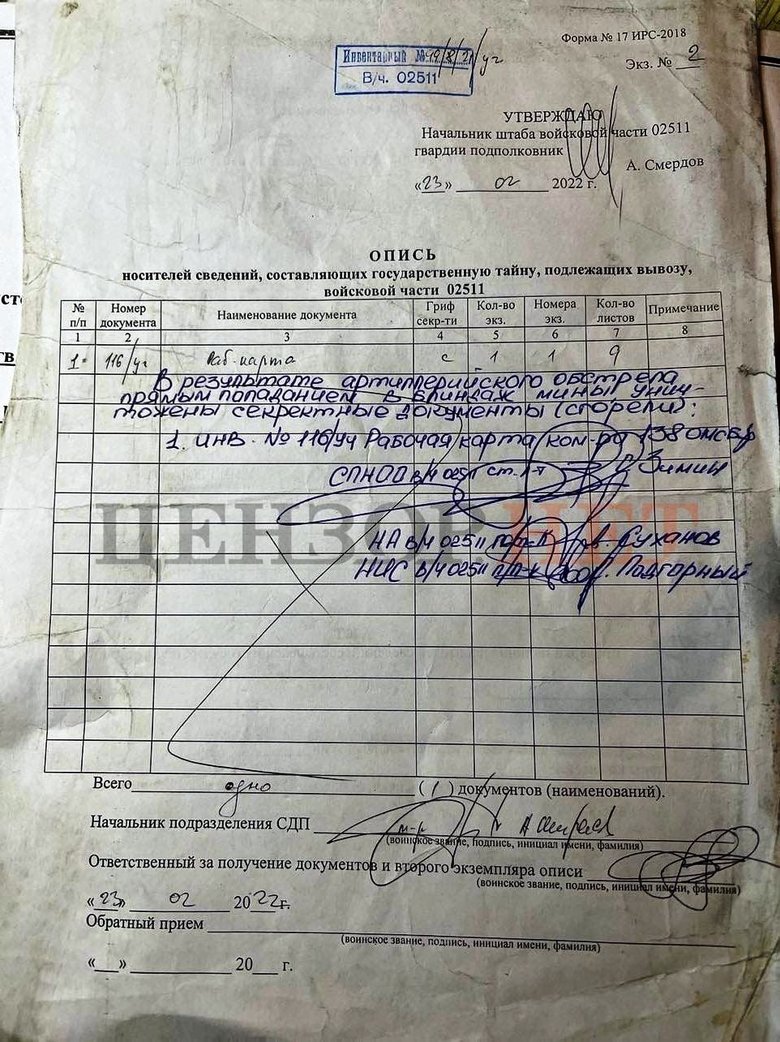 Форма № 17 ИРС-2018
Инвентарный №
уч
В/ч. 02511
Экз. № 2
УТВЕРЖДАЮ
Начальник штаба войсковой части 02511
гвардии подполковник
А. Смердов
«23» 02 2022 г.
ОПИСЬ
носителей сведений, составляющих государственную тайну, подлежащих вывозу,
войсковой части 02511
№ п/п Номер документа Наименование документа Гриф секр-ти Кол-во экз. Номера экз. Кол-во листов Примечание
1 2 3 4 5 6 7 8
1. 116/уч Раб. карта с 1 1 9
В результате артиллерийского обстрела
прямым попаданием в блиндаж мины унич-
тожены секретные документы (сгорели):
1. инв. № 116/уч Рабочая карта ком-ра 138 омсбр
СПНОО в/ч 02511 ст. л-т Зимин
ЦЕНЗОР.НЕТ
НА в/ч 02511 Суханов
НИС в/ч 02511 п/п-к Подгорный
Всего одно (1) документов (наименований).
Начальник подразделения СДП м-р
(воинское звание, подпись, инициал имени, фамилия)
Ответственный за получение документов и второго экземпляра описи
(воинское звание, подпись, инициал имени, фамилия)
«23» 02 2022 г.
Обратный прием
(воинское звание, подпись, инициал имени, фамилия)
«__» 20__ г.